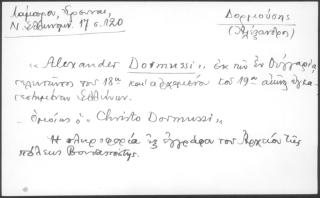 Λάμπρου, Έρευναι,
Ν. Ελληνομ. 17 σ. 120
Δορμούσης
(Αλέξανδρος)
«Alexander Dormussi», εκ των εν Ουγγαρία,
τελευτώντος του 18ου και αρχομένου του 19ου αιώνος εγκα-
τεστημένων Ελλήνων.
ομοίως ο «Christo Dormussi»
Η πληροφορία εξ εγγράφου του Αρχείου της
πόλεως Βουδαπέστης.